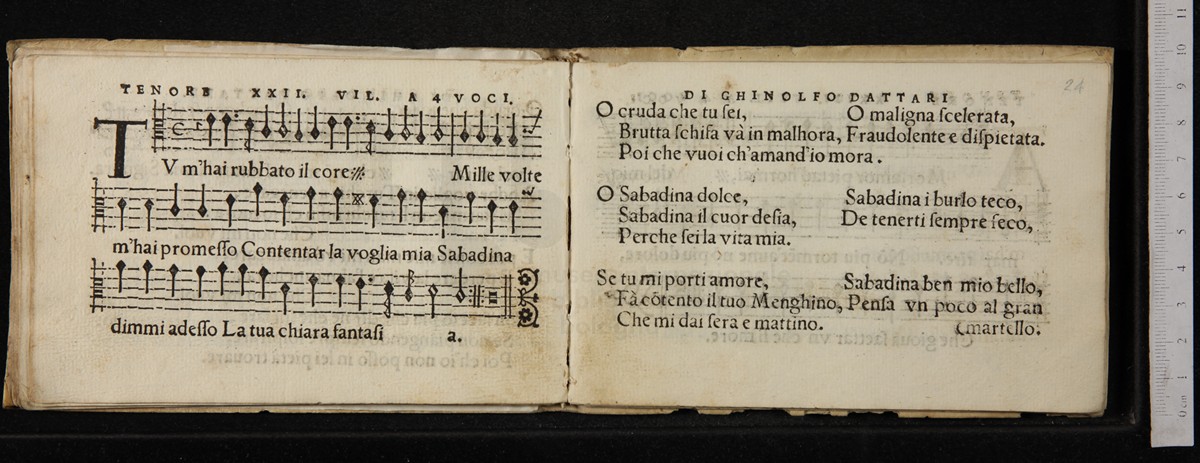 TENORE XXII. VIL. A 4 VOCI.
TV m'hai rubbato il core Mille volte
m'hai promeſſo Contentar la voglia mia Sabadina
dimmi adeſſo La tua chiara fantaſi a.
24
DI GHINOLFO DATTARI
O cruda che tu ſei,
Brutta ſchiſa và in malhora,
Poi che vuoi ch'amand'io mora.
O maligna ſcelerata,
Fraudolente e diſpietata.
O Sabadina dolce,
Sabadina il cuor deſia,
Perche ſei la vita mia.
Sabadina i burlo teco,
De tenerti ſempre ſeco,
Se tu mi porti amore,
Fà cõtento il tuo Menghino,
Che mi dai ſera e mattino.
Sabadina ben mio bello,
Penſa vn poco al gran
(martello.
0 cm 1 2 3 4 5 6 7 8 9 10 11